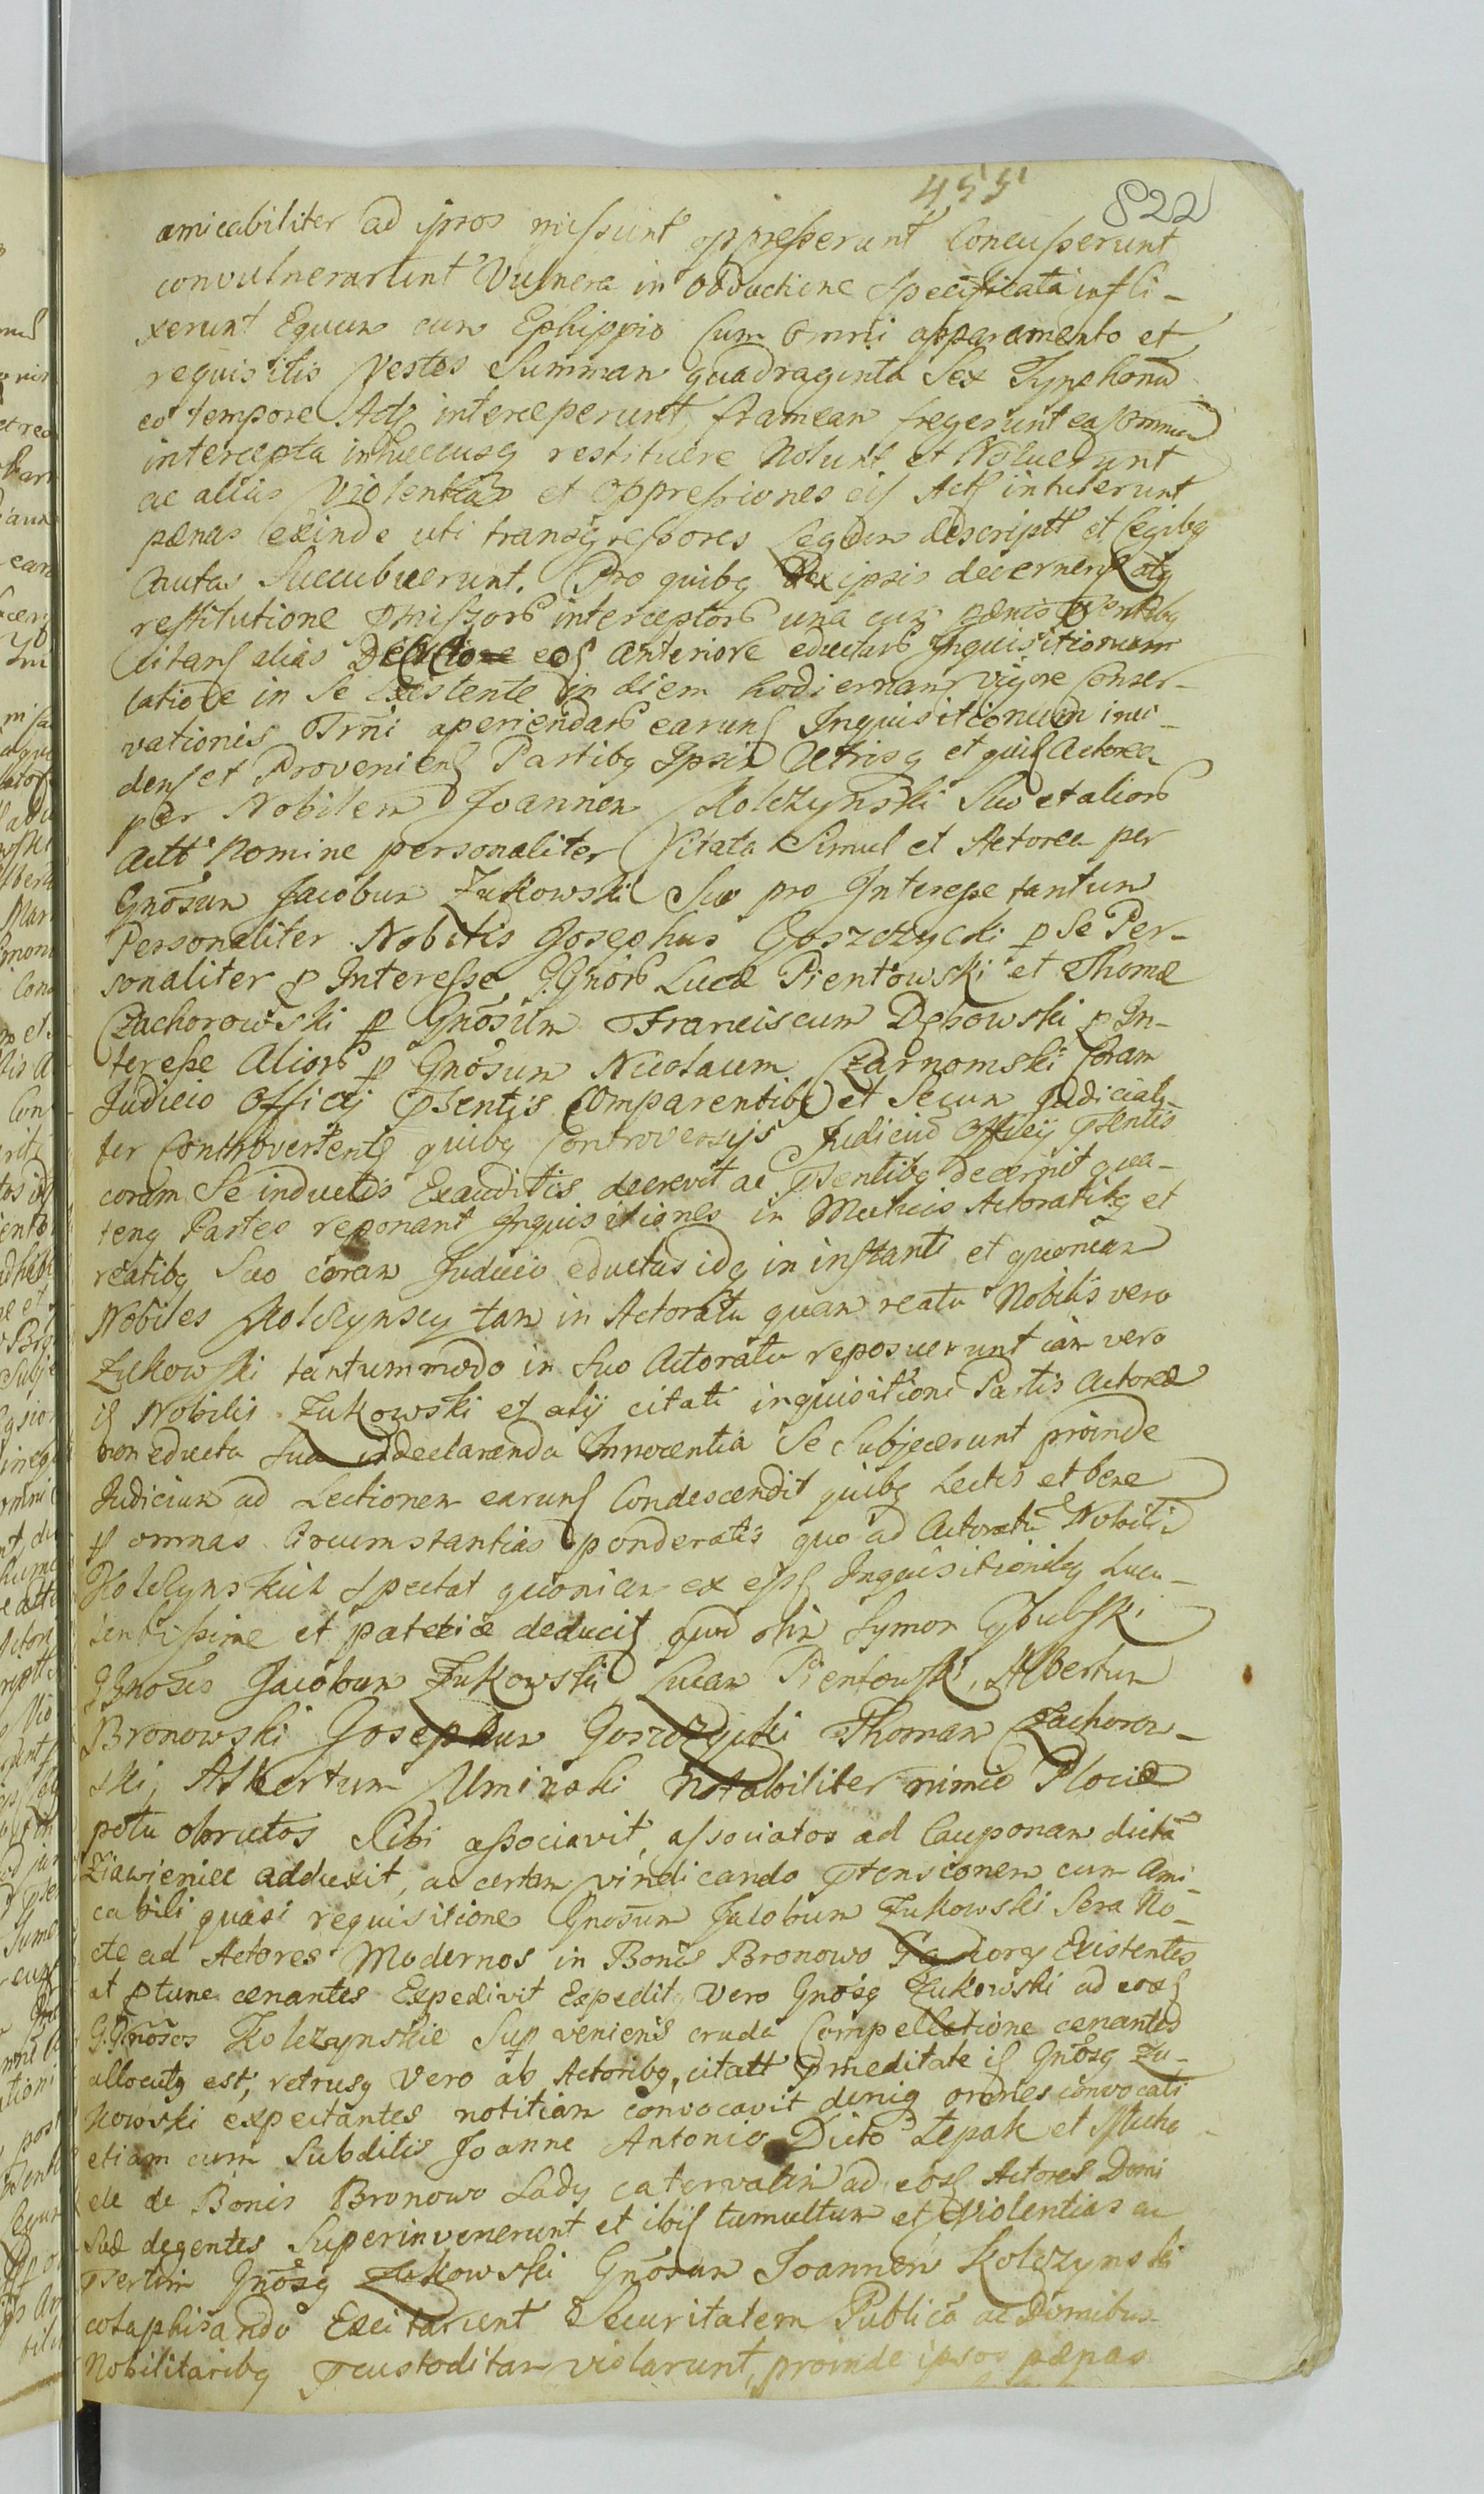 455 822
amicabiliter ad ipsos missunt oppresserunt Concusserunt
convulnerarunt Vulnera in obductione specificata infli-
xerunt Equum cum Ephippio Cum omni apparamento et
requisitis Vestes Summam quadraginta Sex Tynphonũ
eo tempore interceperunt frameam fregerunt ea omnia
intercepta inhucusq restituere Nolunt et Noluerunt
ac alias Violentias et oppressiones eis intulerunt
pænas exinde uti transgressores Legum descript et Legibq
Cautas Succubuerunt. Pro quibq ipsis decernen
restitutione interceptor una cum pænis
Citans alias eos anteriore eductar Inquisitionum
latione in Se Existente in diem hodiernam vigore Conser-
vationis Trñi aperiendar earun Inquisitionum inci-
dens et Provenien Partibq Ipsis Utrisq et quis Actorea
per Nobilem Joannem Kolczynski Suo et alior
Actt Nomine personaliter Citata Simul et Actorea per
Gnõsum Jacobum Zukowski Suo pro Interesse tantum
Personaliter Nobilis Josephus Goszczycki p Se Per-
sonaliter p Interesse GGnõr Lucæ Pientowski et Thomæ
Czachorowski p Gnõsum Franciscum Dębowski p In-
teresse Alior p Gnõsum Nicolaum Czarnomski Coram
Judicio Officij Psentis Comparentibq et Secum Judiciali-
ter Controvertente quibq Controversijs Judiciũ Officij Psentis
coram Se inductis Exauditis decrevit ac Psentibq decernit qua-
tenq Partes reponant Inquisitiones in Mutuis Actoratibq et
reatibq Suo coram Judicio eductas idq in instanti et quoniam
Nobiles Kolczynscy tam in Actoratu quam reatu Nobilis vero
Zukowski tantummodo in Suo Actoratu reposuerunt iam vero
is Nobilis Zukowski et alij citati inquisitioni Partis Actoreæ
non educta Sua declaranda Innocentia Se Subjecerunt proinde
Judicium ad Lectionem earun Condescendit quibq Lectis et bene
p omnas Circumstantias ponderatis quo ad Actoratũ Nobiliũ
Kolczynskich Spectat quoniam ex eis Inquisitionibq Lucu-
lentissime et patetice deducit quod olim Symon Cybulski
GGnõsos Jacobum Zukowski Lucam Pientowski, Albertum
Bronowski Josephum Goszczycki Thomam Czachorow-
ski, Albertum Uminski Notabiliter nimio Plociæ
potu obrutos Sibi associavit, associatos ad Cauponam dictã
Ziawieniec adduxit, ac certam vindicando Ptensionem cum ami-
cabili quasi requisitione Gnosum Jacobum Zukowski Sera No-
cte ad Actores Modernos in Bonis Bronowo Existentes
et p tunc cænantes Expedivit Expeditq Vero Gnõsq Zukowski ad eos
GGnõsos Kolczynskie Sup veniens cruda Compellatione cænantes
allocutq est, retrusq Vero ab Actoribq, citatt Pmeditate is Gnõsq Zu-
kowski expectantes notitiam convocavit deniq omnes convocati
etiam cum Subditis Joanne Antonio Dicto Lepak et Micha
ele de Bonis Bronowo Sady catervatim ad eos Actores Domi
Suæ degentes Superinvenerunt et ibi tumultum et Violentias ac
Psertim Gnõsq Zukowski Gnõsum Joannem Kolczynski
colaphisando Excitarunt Securitatem Publicã ac Domibus
Nobilitaribq Pcustoditam violarunt, proinde ipsos pænas